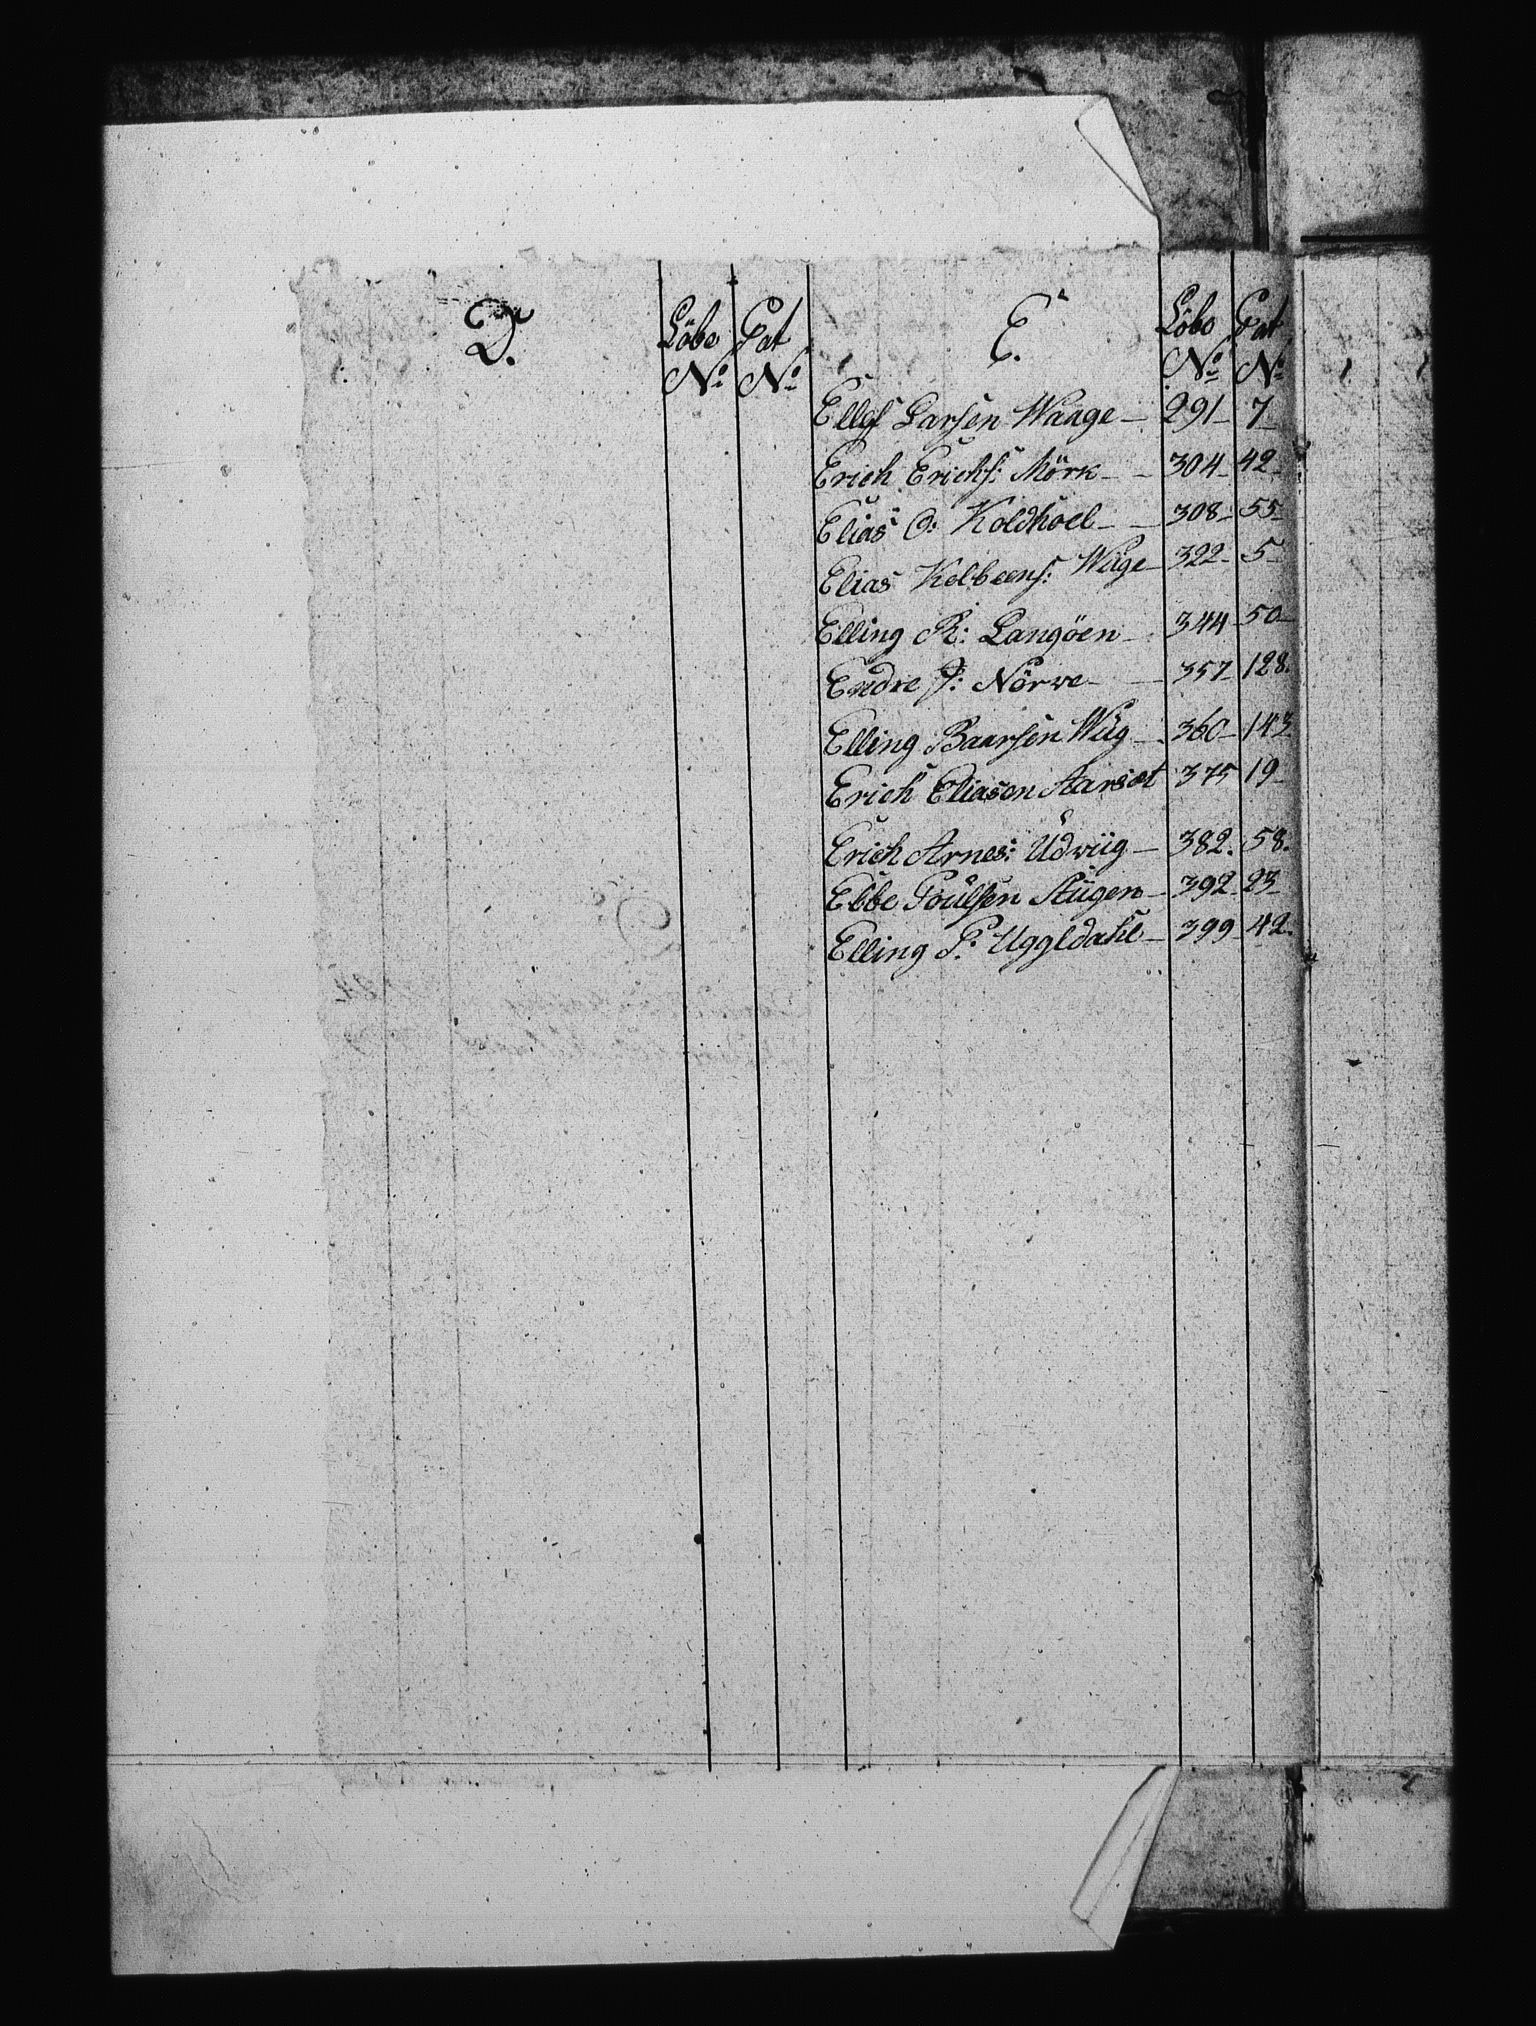 D. Löbe Pat E. Löbe Pat
No No No No
Ellef Larsen Waage — 291 — 7 —
Erich Erichs: Mörk — — 304 — 42 —
Elias O: Koldhoel — — 308 — 55 —
Elias Kolbeens: Wage — 322 — 5 —
Elling R: Langöen — 344 — 50 —
Endre J: Nörve — — 357 — 128.
Elling Baarsen Wüg — 360 — 143
Erich Eliasen Aarsæt 375 19 —
Erich Arnes: Udwüg — 382. 58.
Ebbe Poulsen — 392 — 23 —
Elling P: Uggldahl — 399 — 42.